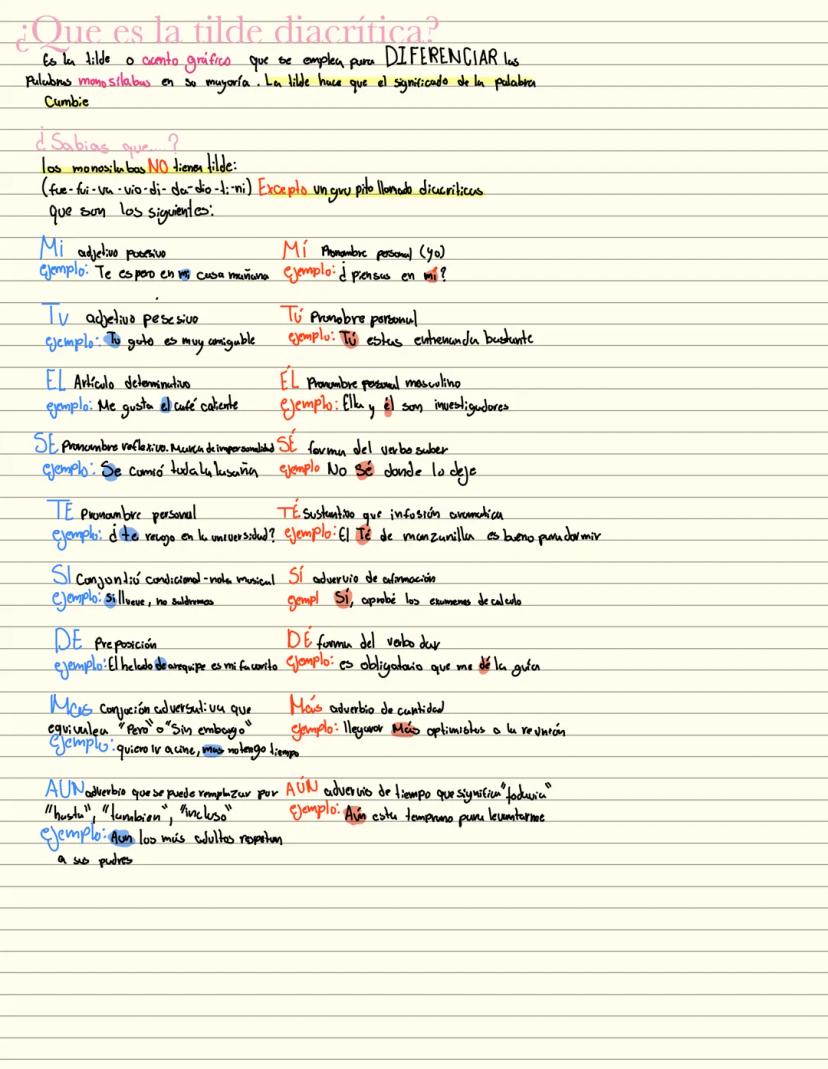 ¿Que es la tilde diacrítica?
Es la tilde o acento gráfico que se emplea para DIFERENCIAR las
Palabras monosílabas en su mayoría. La tilde hace que el significado de la palabra
Cambie
¿Sabias que....?
los monosilabas NO tienen tilde:
(fue-fui-va-vio-di-da-dio-ti-ni) Excepto un grupito llamado diacriticas
que son los siguientes:
Mi adjetivo posesivo Mí Pronombre personal (yo)
ejemplo: Te espero en mi casa mañana ejemplo: ¿piensas en mí?
Tu adjetivo pesesivo Tú Pronobre personal
ejemplo: Tu gato es muy amigable ejemplo: Tú estas entrenando bastante
EL Artículo determinativo ÉL Pronombre personal masculino
ejemplo: Me gusta el café caliente ejemplo: Ella y él son investigadores
SE Pronombre reflexivo. Marca de impersonalidad SÉ forma del verbo saber
ejemplo: Se comió toda la lasaña ejemplo No Sé donde lo deje
TE Pronombre personal TÉ Sustantivo que infosión aromatica
ejemplo: ¿te recojo en la universidad? ejemplo: El Té de manzanilla es bueno para dormir
SI Conjontiú condicional-nota musical SÍ advervio de afirmación
ejemplo: Si llueve, no saldremos ejempl Sí, aprobé los examenes de calculo
DE Preposición DÉ forma del verbo dar
ejemplo: El helado de arequipe es mi favorito ejemplo: es obligatorio que me dé la guía
Mas Conjoción adversativa que Más adverbio de cantidad
equivalea "Pero" o "Sin embargo" ejemplo: llegaron Más optimistas a la reunión
Ejemplo: quiero ir a cine, mas no tengo tiempo
AUN adverbio que se puede remplazar por AÚN advervio de tiempo que significa "todavia"
"hasta", "tambien", "incluso" ejemplo: Aún esta temprano para levantarme
ejemplo: Aun los más adultos respetan
a sus padres